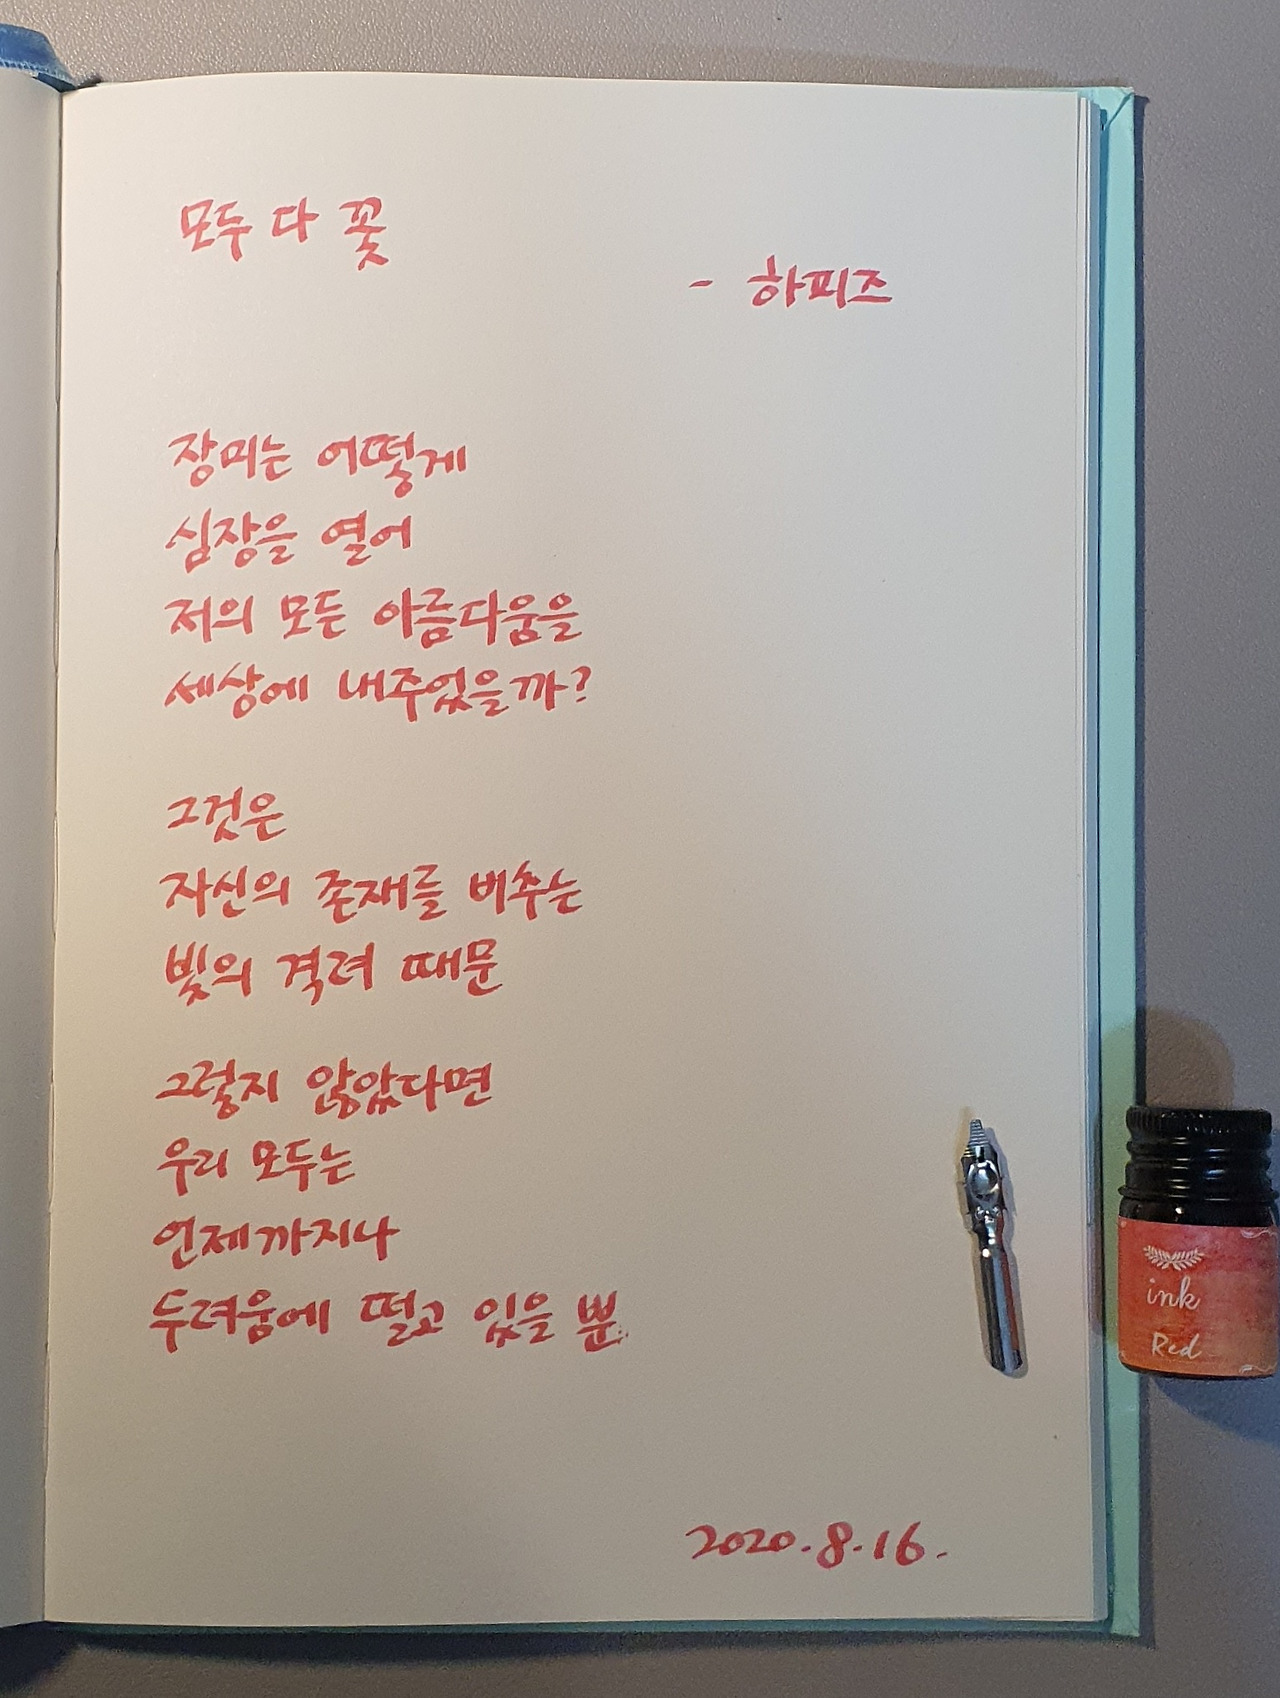 모두 다 꽃
- 하피즈
장미는 어떻게
심장을 열어
저의 모든 아름다움을
세상에 내주었을까?
그것은
자신의 존재를 비추는
빛의 격려 때문
그렇지 않았다면
우리 모두는
언제까지나
두려움에 떨고 있을 뿐.
2020.8.16.
ink
Red